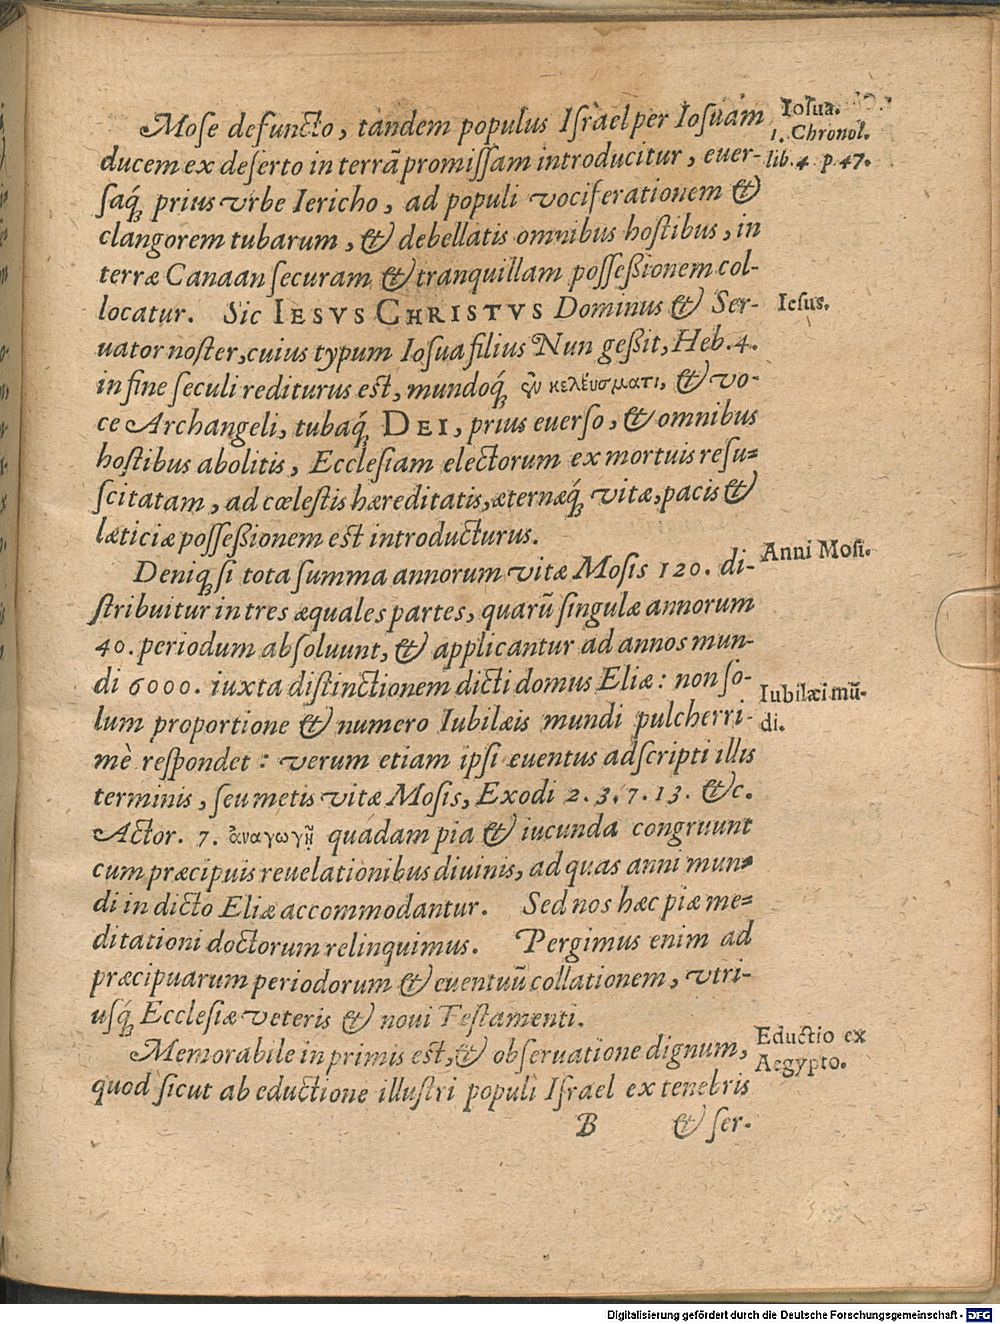 Moſe defuncto, tandem populus Iſrael per Ioſuam
Ioſua.
1. Chronol.
ducem ex deſerto in terrā promiſſam introducitur, euer-
lib. 4. p. 47.
ſaq́ꝫ prius vrbe Iericho, ad populi vociferationem &
clangorem tubarum, & debellatis omnibus hoſtibus, in
terræ Canaan ſecuram & tranquillam poſſeßionem col-
locatur. Sic IESVS CHRISTVS Dominus & Ser-
Ieſus.
uator noſter, cuius typum Ioſua filius Nun geßit, Heb. 4.
in fine ſeculi rediturus est, mundoq́ꝫ ἐν κελεύσματι, & vo-
ce Archangeli, tubaq́ꝫ DEI, prius euerſo, & omnibus
hoſtibus abolitis, Eccleſiam electorum ex mortuis reſu-
ſcitatam, ad cœleſtis hæreditatis, æternæq́ꝫ vitæ, pacis &
læticiæ poſſeßionem est introducturus.
Anni Moſi.
Deniqꝫ ſi tota ſumma annorum vitæ Moſis 120. di-
ſtribuitur in tres æquales partes, quarū ſingulæ annorum
40. periodum abſoluunt, & applicantur ad annos mun-
di 6000. iuxta diſtinctionem dicti domus Eliæ: non ſo-
Iubilæi mū-
lum proportione & numero Iubilæis mundi pulcherri-
di.
mè reſpondet: verum etiam ipſi euentus adſcripti illis
terminis, ſeu metis vitæ Moſis, Exodi 2. 3. 7. 13. &c.
Actor. 7. ἀναγωγῇ quadam pia & iucunda congruunt
cum præcipuis reuelationibus diuinis, ad quas anni mun-
di in dicto Eliæ accommodantur. Sed nos hæc piæ me-
ditationi doctorum relinquimus. Pergimus enim ad
præcipuarum periodorum & euentuū collationem, vtri-
uſq́ꝫ Eccleſiæ veteris & noui Teſtamenti.
Eductio ex
Memorabile in primis est, & obſeruatione dignum,
Aegypto.
quod ſicut ab eductione illuſtri populi Iſrael ex tenebris
B & ſer-
Digitalisierung gefördert durch die Deutsche Forschungsgemeinschaft - DFG